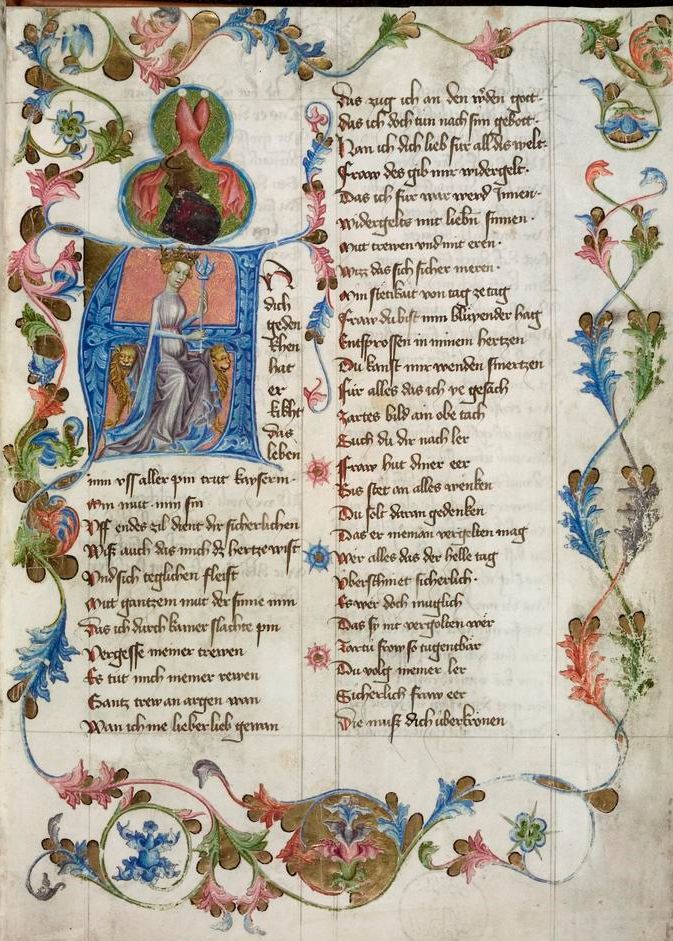 Ich
dich
geden
khen
hat
er
kiht
das
leben
min vss aller pin trut kayserin
min mut min sin
Vff endes zil dient dir sicherlichen
Waist auch das mich dz hertze wist
Vnd sich teglichen fleist
Mit gantzem mut der sinne min
Das ich durch kainer slachte pin
Vergesse meiner trewen
Es tut mich memer rewen
Gantz trew an argen wan
Wan ich nie lieber lieb gewan
Das zug ich an den gott
das ich doch tun nach sim gebott
Han ich dich lieb für all dis welt
Fraw des gib mir widergelt
Das ich für war werd Innen
Widergelts mit liebn sinnen
Mit trewen vnd mit eren
Wizz das sich sicher meren
Min stetikait von tag ze tag
Fraw du bist min blüyender hag
Entsprossen in minem hertzen
Du kanst mir wenden smertzen
Für alles das ich ye gesach
Zartes bild ain obe tach
Such du dir nach ler
Fraw hut diner eer
Bis stet an alles wenken
Du solt daran gedenken
Das er nieman vergelten mag
Wer alles das der helle tag
Vberschinet sicherlich
Es wer doch muglich
Das sy nit vergolten wer
Zartü frow so tugentbär
Du volg meiner ler
Sicherlich fraw eer
Die muß dich überkrönen